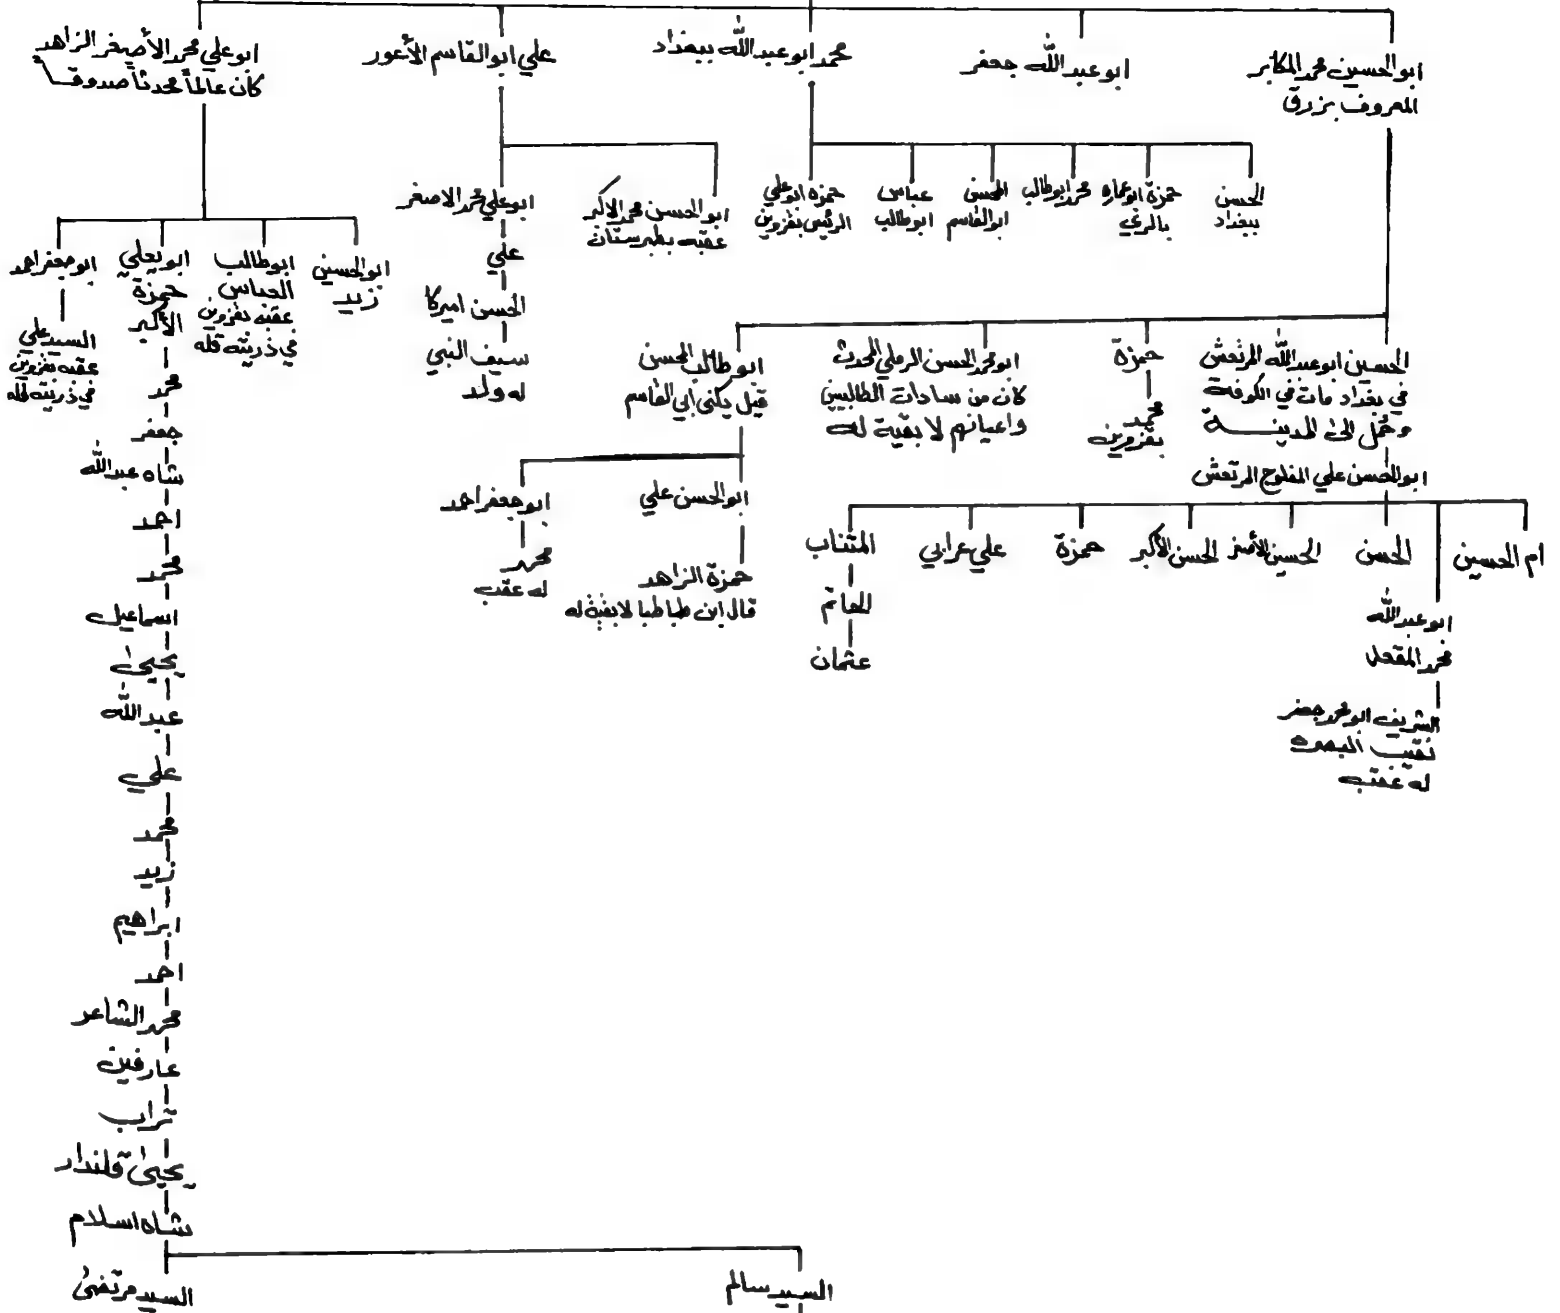 ابو الحسين محمد المكابر
المعروف بزرق
ابو عبد الله جعفر
محمد ابو عبد الله ببغداد
علي ابو القاسم الأعور
ابو علي محمد الأصغر الزاهد
كان عالماً محدثاً صدوقاً
الحسن
ببغداد
حمزة ابو عماره
بالري
محمد ابو طالب
الحسن
ابو القاسم
عباس
ابو طالب
حمزه ابو علي
الرئيس بقزوين
ابو الحسن محمد الأكبر
عقبه بطبرستان
ابو علي محمد الاصغر
علي
الحسن اميركا
سيف النبي
له ولد
ابو الحسين
زيد
ابو طالب
العباس
عقبه بقزوين
في ذريته قله
ابو يعلي
حمزة
الأكبر
ابو جعفر احمد
السيد علي
عقبه بقزوين
في ذريته قله
الحسين ابو عبد الله المرتعش
في بغداد مات في الكوفة
وحمل الى المدينة
حمزة
محمد
بقزوين
ابو محمد الحسن الرملي المحدث
كان من سادات الطالبيين
واعيانهم لا بقية له
ابو طالب الحسن
قيل يكنى ابي القاسم
ابو الحسن علي المفلوج المرتعش
ابو الحسن علي
حمزة الزاهد
قال ابن طباطبا لا بقية له
ابو جعفر احمد
محمد
له عقب
ام الحسين
ابو عبد الله
محمد المقعد
الشريف ابو محمد جعفر
نقيب البصره
له عقب
الحسن
الحسين الأصغر
الحسن الأكبر
حمزة
علي عرابي
المتناب
الغانم
عثمان
محمد
جعفر
شاه عبد الله
احمد
محمد
اسماعيل
يحيى
عبد الله
علي
محمد
زيد
ابراهيم
احمد
محمد الشاعر
عارفين
تراب
يحيى قلندار
شاه اسلام
السيد سالم
السيد مرتضى